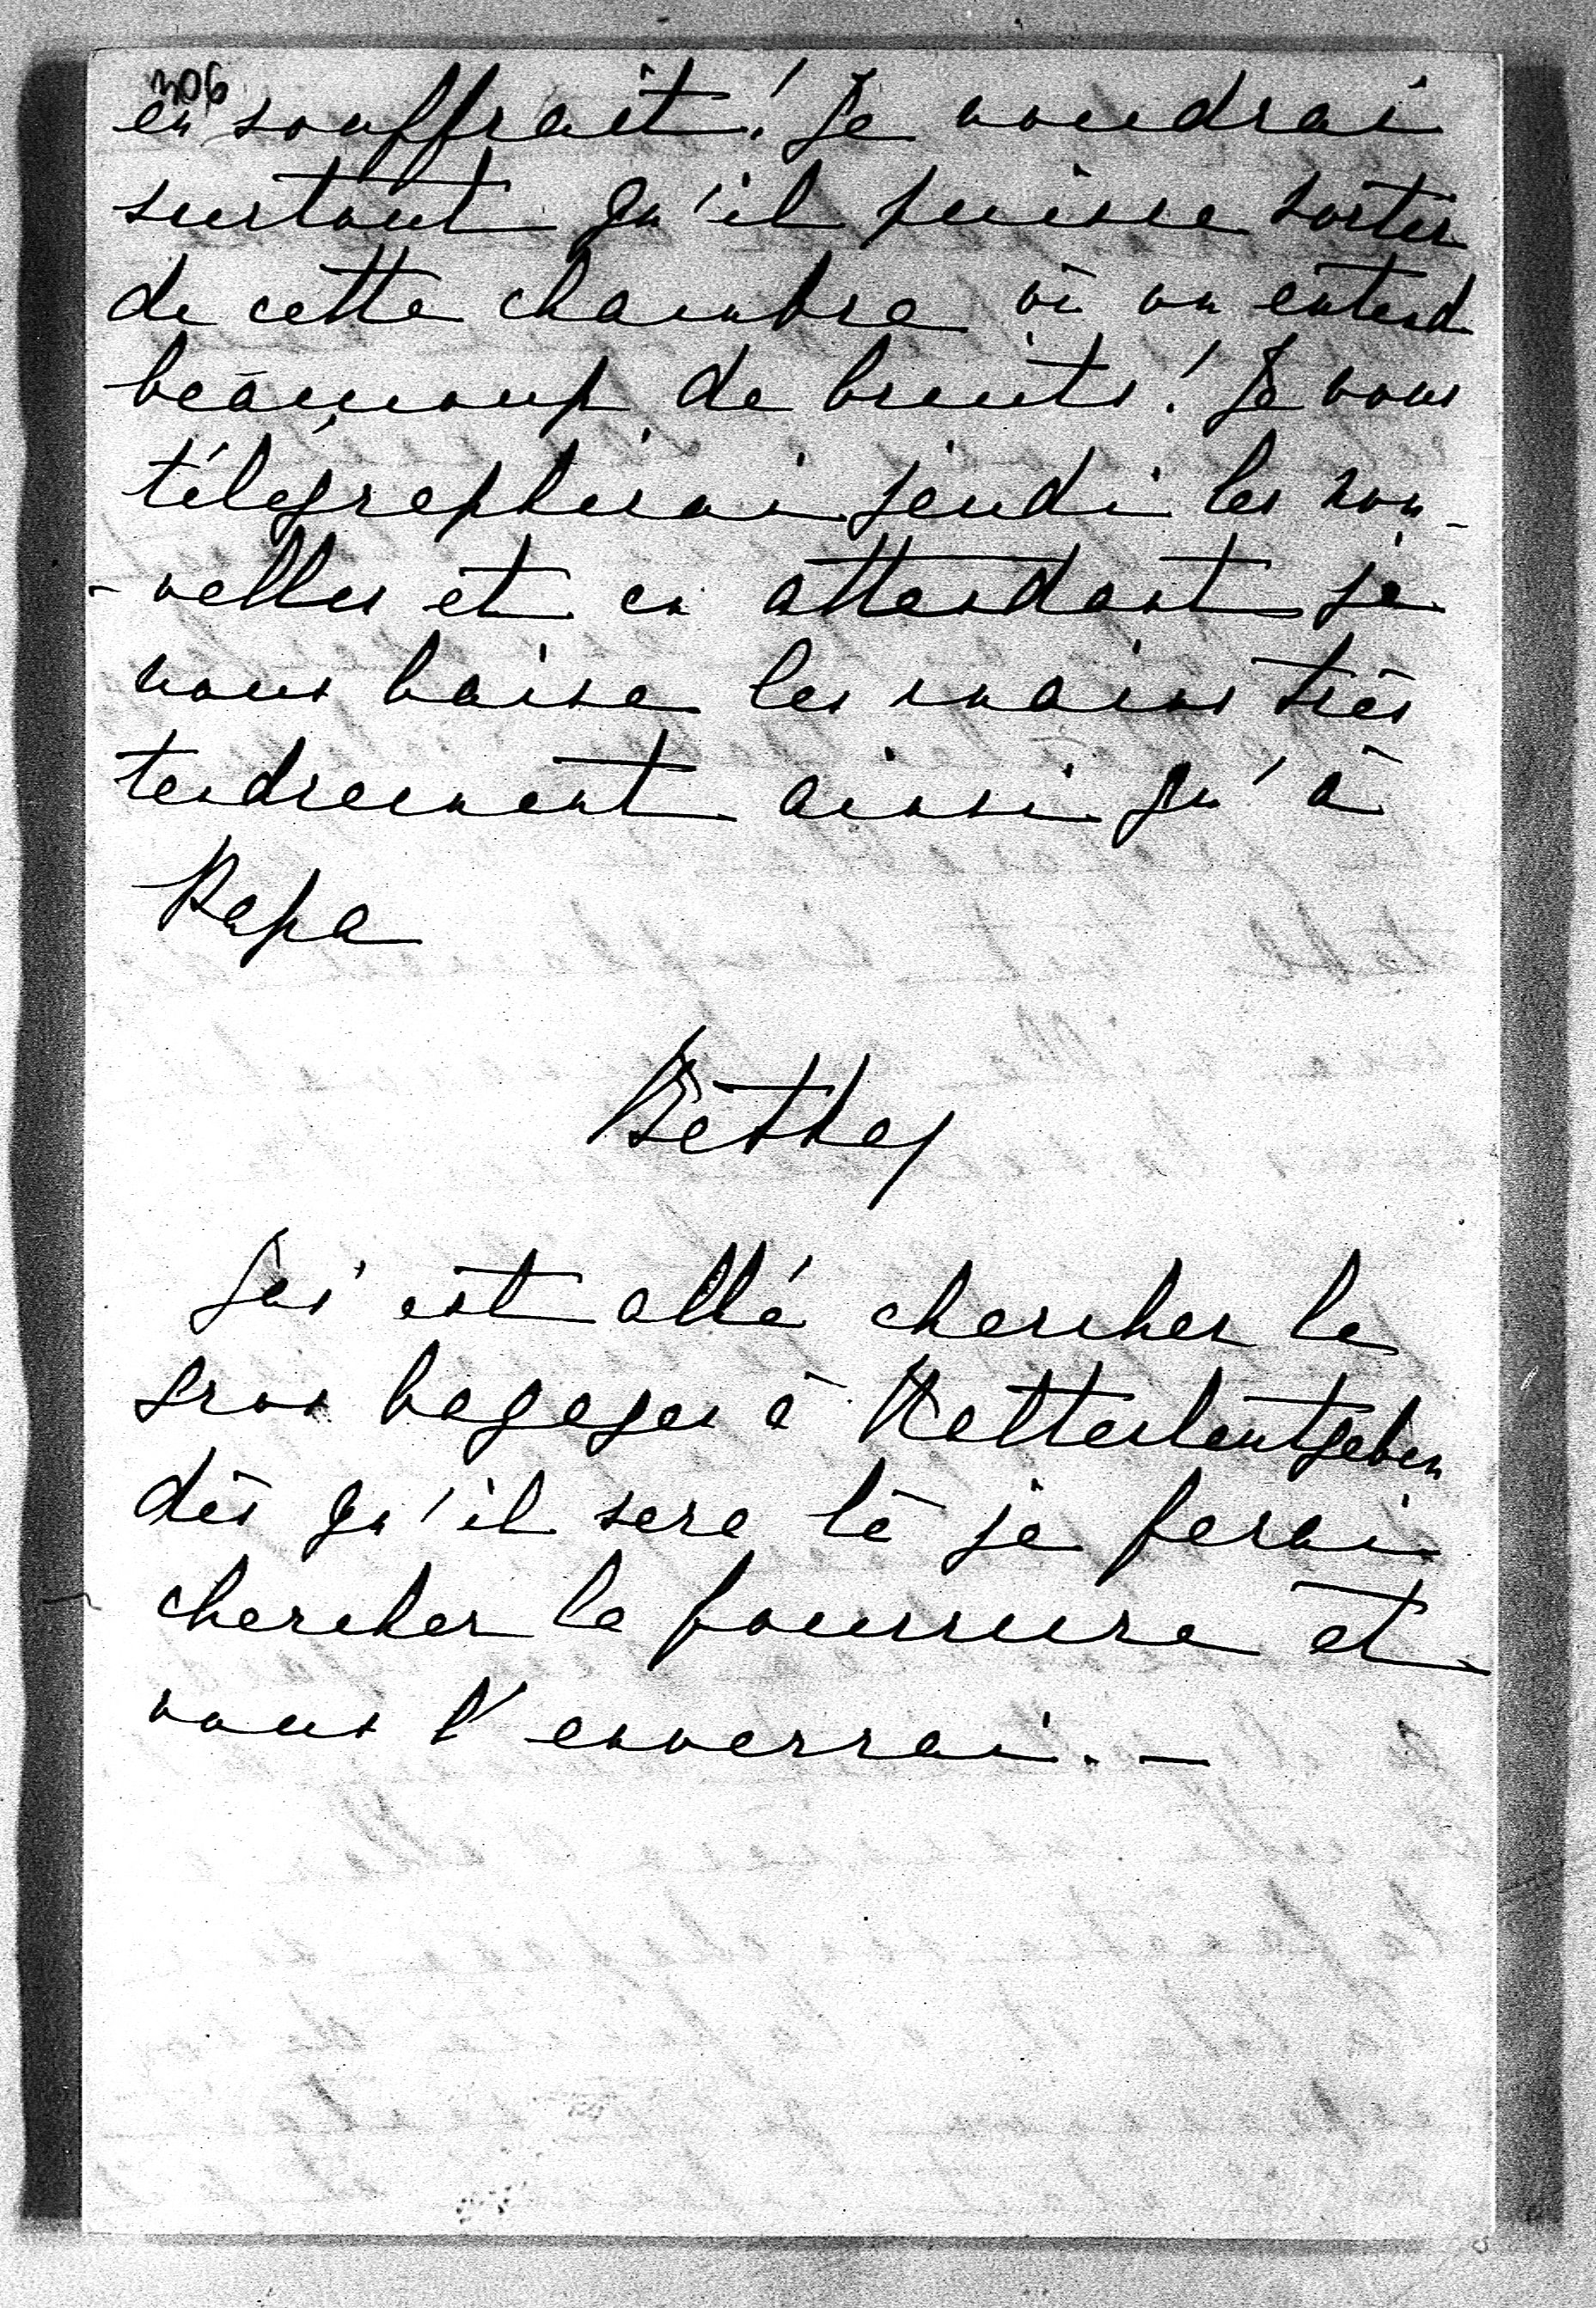 306
en souffrait! Je voudrai
surtout qu'il puisse sortir
de cette chambre où on entend
beaucoup de bruits! Je vous
télégrapherai jeudi les nou-
-velles et en attendant je
vous baise les mains très
tendrement ainsi qu'à
Papa
est allé chercher le
gros bagages à
dès qu'il sera là je ferai
chercher la fourrure et
vous l'enverrai. —